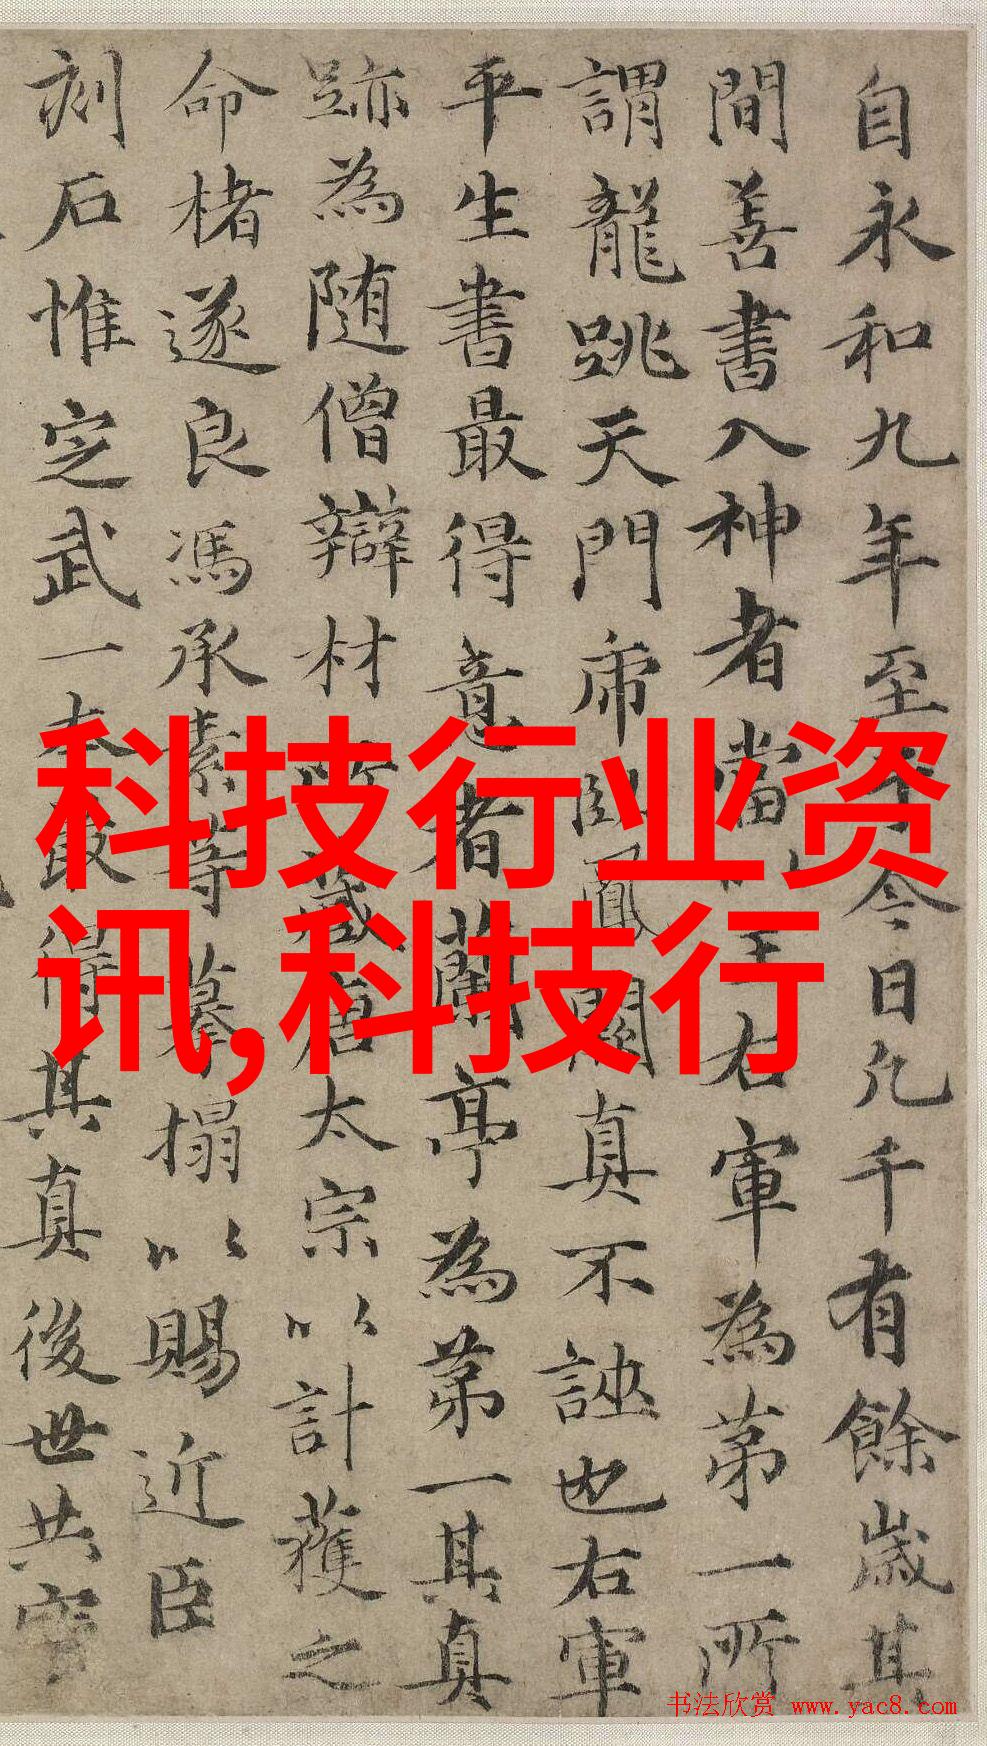 自永和九年至今日凡千有餘歲其
間善書入神者當王右軍為第一所
謂龍跳天門虎卧鳳閣真不誣也右軍
平生書最得意者蘭亭為第一其真
跡為随僧辯材所藏唐太宗以計獲之
命楮遂良馮承素等摹搨以賜近臣
刻石惟定武一本最得其真後世共寳
科技行业资
讯,科技行
书法欣赏 www.yac8.com